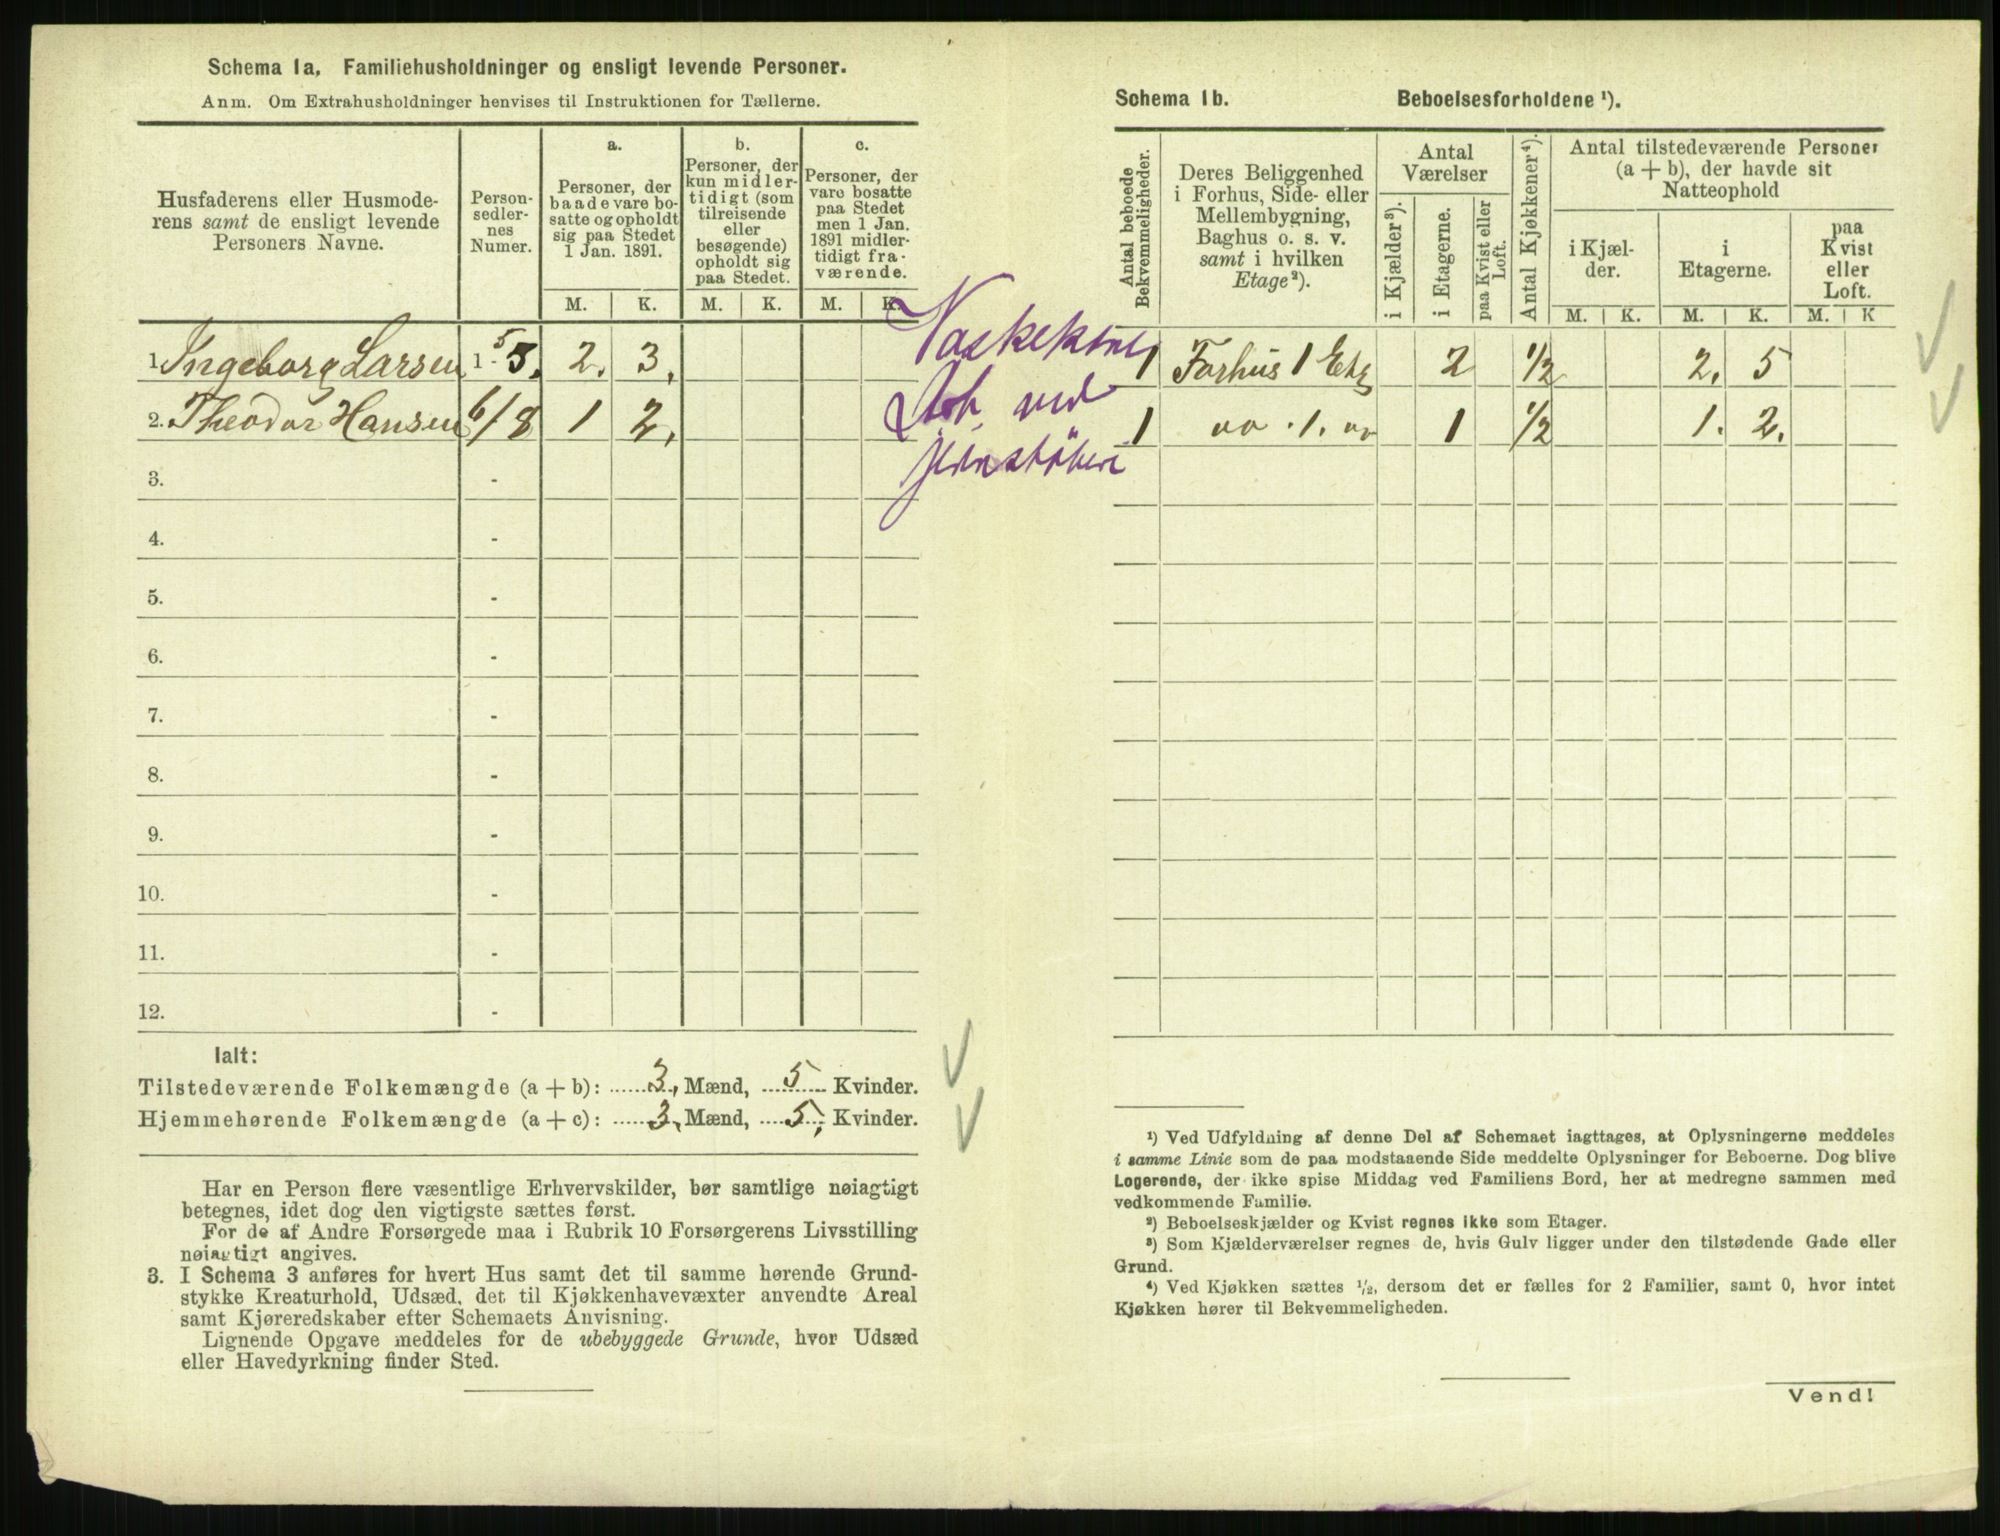 Schema 1a. Familiehusholdninger og ensligt levende Personer.
Anm. Om Extrahusholdninger henvises til Instruktionen for Tællerne.
Husfaderens eller Husmoderens samt de ensligt levende Personers Navne.
Personsedlernes Numer.
a.
Personer, der baade vare bosatte og opholdt sig paa Stedet 1 Jan. 1891.
b.
Personer, der kun midlertidigt (som tilreisende eller besøgende) opholdt sig paa Stedet.
c.
Personer, der vare bosatte paa Stedet men 1 Jan. 1891 midlertidigt fraværende.
M. K. M. K. M. K.
1. Ingeborg Larsen 1 - 5. 2. 3.
2. Theodor Hansen 6/8 1 2.
3. -
4. -
5. -
6. -
7. -
8. -
9. -
10. -
11. -
12. -
Vaskekone
Arb. ved
jernstöberi
Ialt:
Tilstedeværende Folkemængde (a + b): 3, Mænd, 5 Kvinder.
Hjemmehørende Folkemængde (a + c): 3, Mænd, 5, Kvinder.
Har en Person flere væsentlige Erhvervskilder, bør samtlige nøiagtigt
betegnes, idet dog den vigtigste sættes først.
For de af Andre Forsørgede maa i Rubrik 10 Forsørgerens Livsstilling
nøiagtigt angives.
3. I Schema 3 anføres for hvert Hus samt det til samme hørende Grund-
stykke Kreaturhold, Udsæd, det til Kjøkkenhavevæxter anvendte Areal
samt Kjøreredskaber efter Schemaets Anvisning.
Lignende Opgave meddeles for de ubebyggede Grunde, hvor Udsæd
eller Havedyrkning finder Sted.
Schema 1b. Beboelsesforholdene ¹).
Antal beboede Bekvemmeligheder.
Deres Beliggenhed i Forhus, Side- eller Mellembygning, Baghus o. s. v. samt i hvilken Etage²).
Antal Værelser
i Kjælder³).
i Etagerne.
paa Kvist eller Loft.
Antal Kjøkkener⁴).
Antal tilstedeværende Personer (a + b), der havde sit Natteophold
i Kjælder.
i Etagerne.
paa Kvist eller Loft.
M. K. M. K. M. K
1 Forhus 1 Etg 2 1/2 2. 5
1 " . 1. " 1 1/2 1. 2.
¹) Ved Udfyldning af denne Del af Schemaet iagttages, at Oplysningerne meddeles
i samme Linie som de paa modstaaende Side meddelte Oplysninger for Beboerne. Dog blive
Logerende, der ikke spise Middag ved Familiens Bord, her at medregne sammen med
vedkommende Familie.
²) Beboelseskjælder og Kvist regnes ikke som Etager.
³) Som Kjælderværelser regnes de, hvis Gulv ligger under den tilstødende Gade eller
Grund.
⁴) Ved Kjøkken sættes ½, dersom det er fælles for 2 Familier, samt 0, hvor intet
Kjøkken hører til Bekvemmeligheden.
Vend!